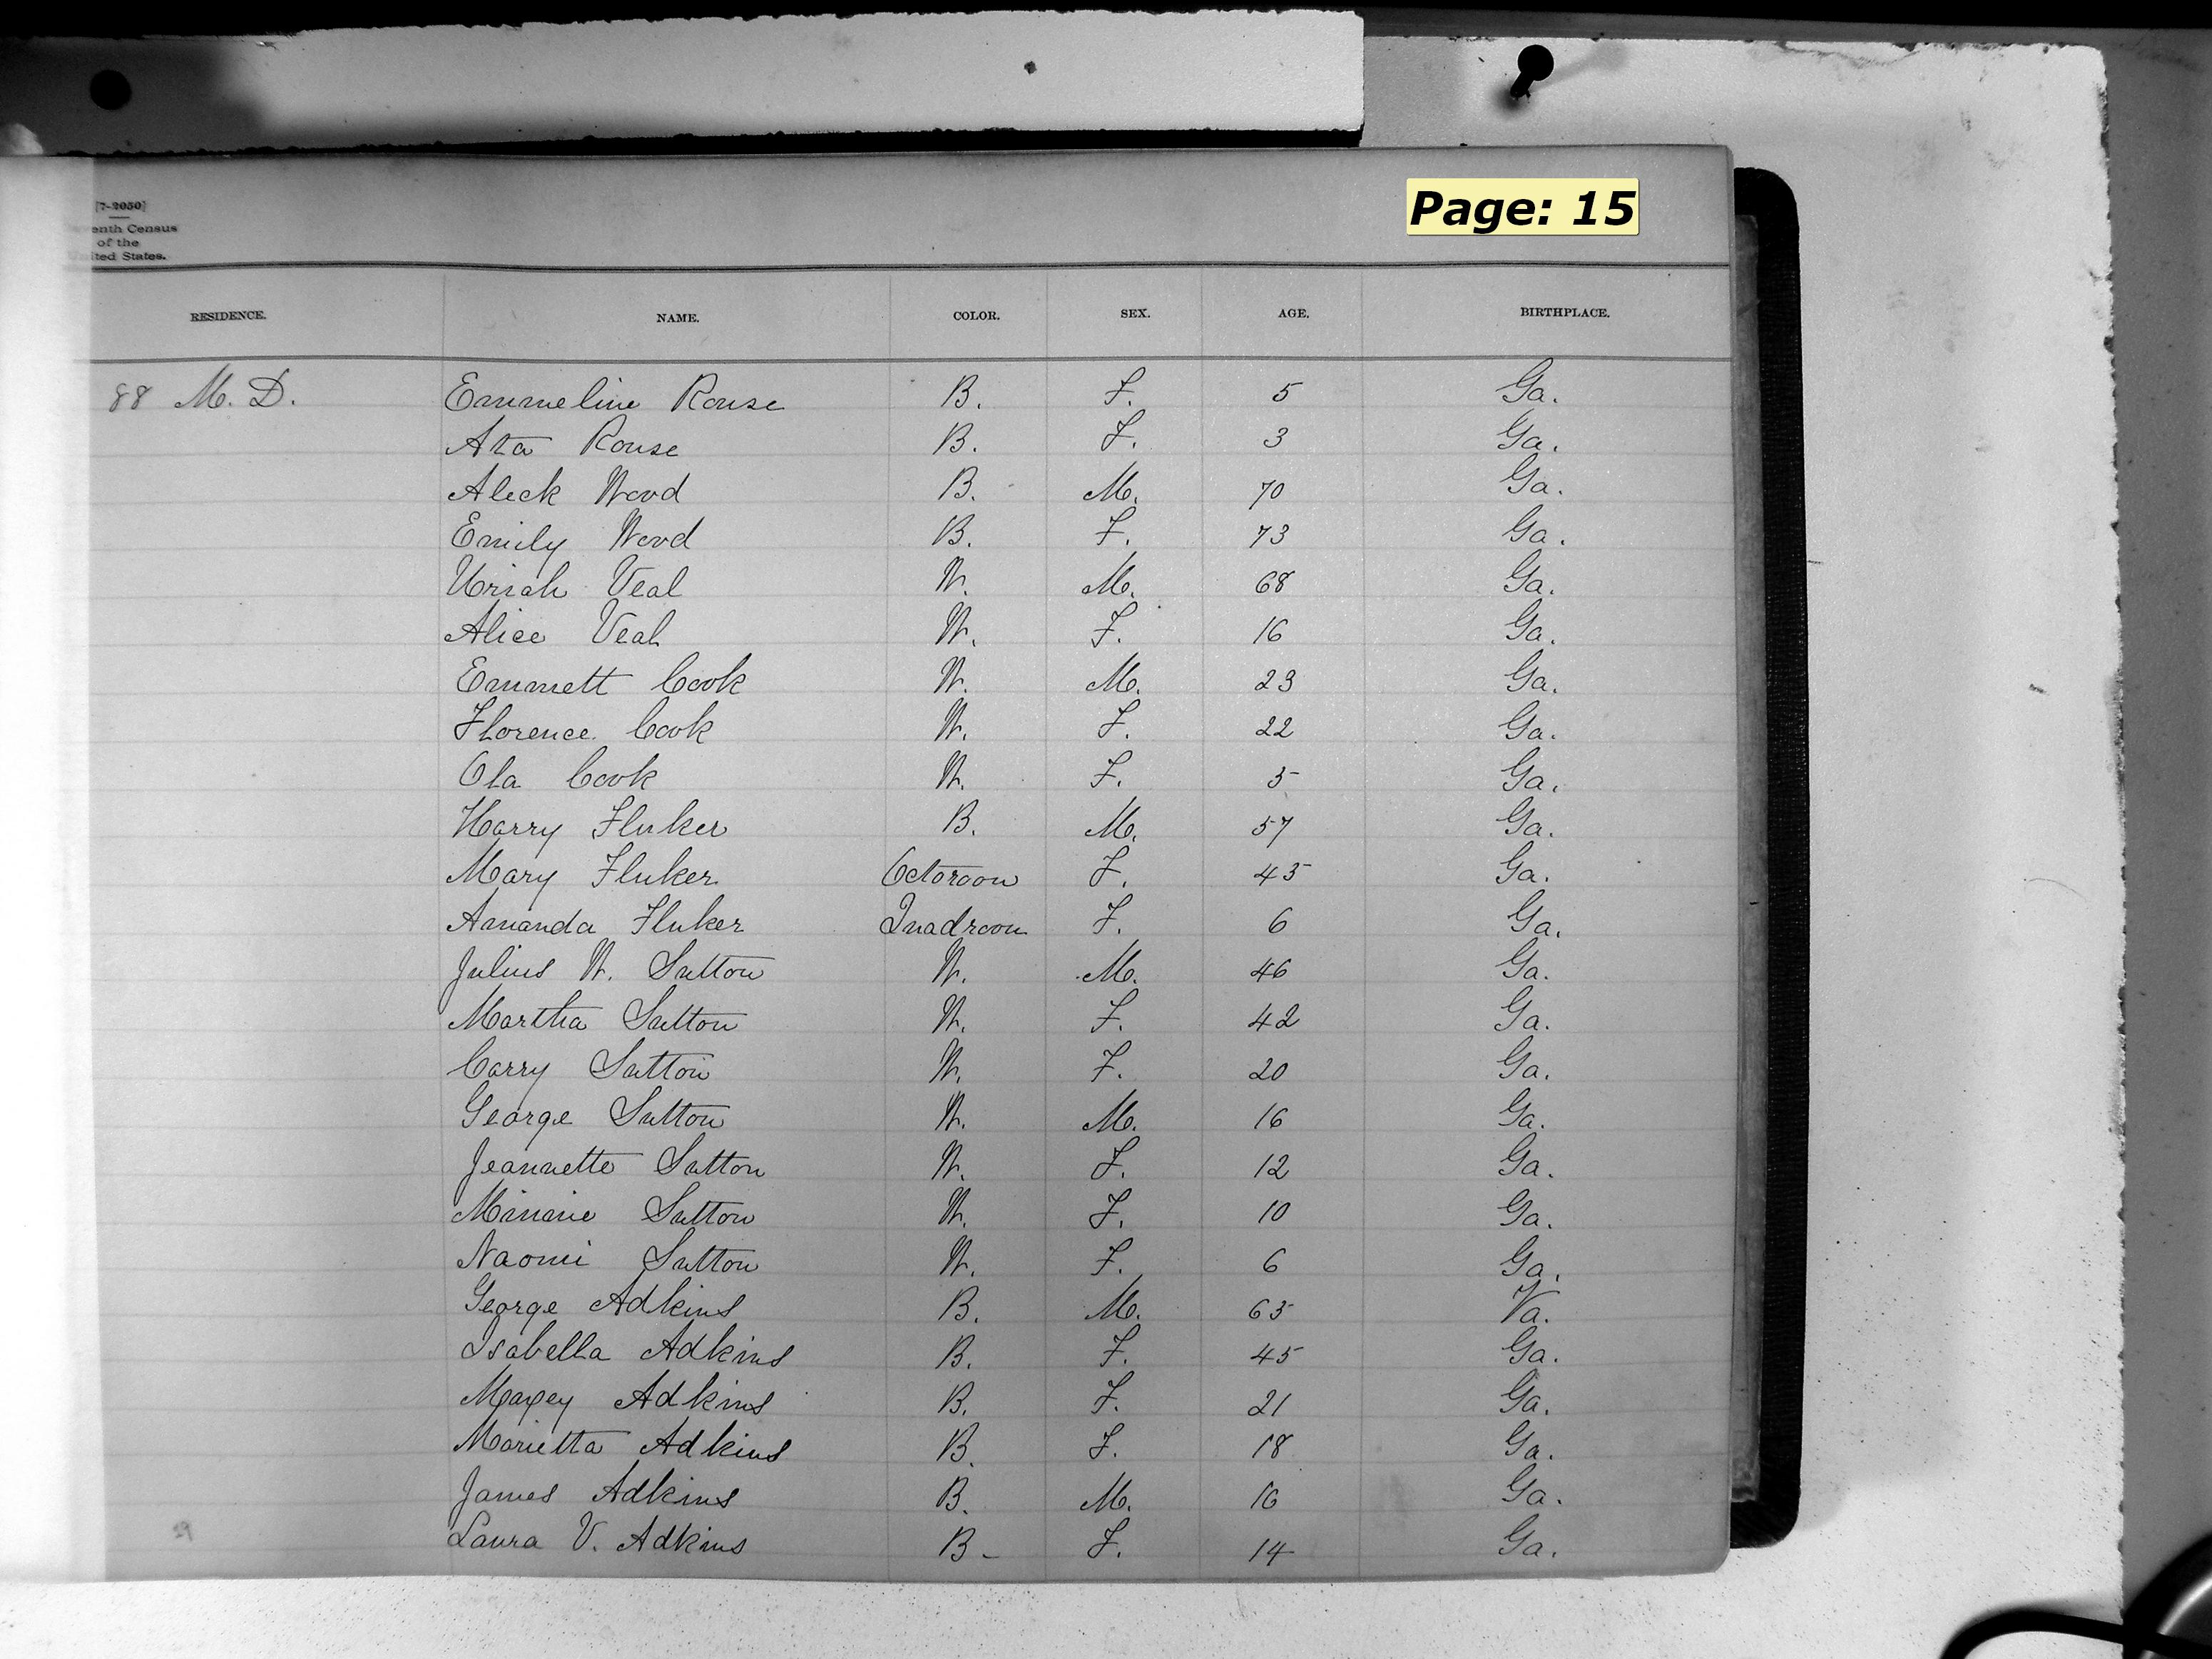 Page: 15
[7-2050]
enth Census
of the
ited States.
RESIDENCE. NAME. COLOR. SEX. AGE. BIRTHPLACE.
88 M. D. Emmeline Rouse B. F. 5 Ga.
Ata Rouse B. F. 3 Ga.
Aleck Wood B. M. 70 Ga.
Emily Wood B. F. 73 Ga.
Uriah Veal W. M. 68 Ga.
Alice Veal W. F. 16 Ga.
Emmett Cook W. M. 23 Ga.
Florence Cook W. F. 22 Ga.
Ola Cook W. F. 5 Ga.
Harry Fluker B. M. 57 Ga.
Mary Fluker Octoroon F. 45 Ga.
Amanda Fluker Quadroon F. 6 Ga.
Julius W. Sutton W. M. 46 Ga.
Martha Sutton W. F. 42 Ga.
Carry Sutton W. F. 20 Ga.
George Sutton W. M. 16 Ga.
Jeannette Sutton W. F. 12 Ga.
Minnie Sutton W. F. 10 Ga.
Naomi Sutton W. F. 6 Ga.
George Adkins B. M. 65 Va.
Isabella Adkins B. F. 45 Ga.
Maxey Adkins B. F. 21 Ga.
Marietta Adkins B. F. 18 Ga.
James Adkins B. M. 16 Ga.
29 Laura V. Adkins B - F. 14 Ga.